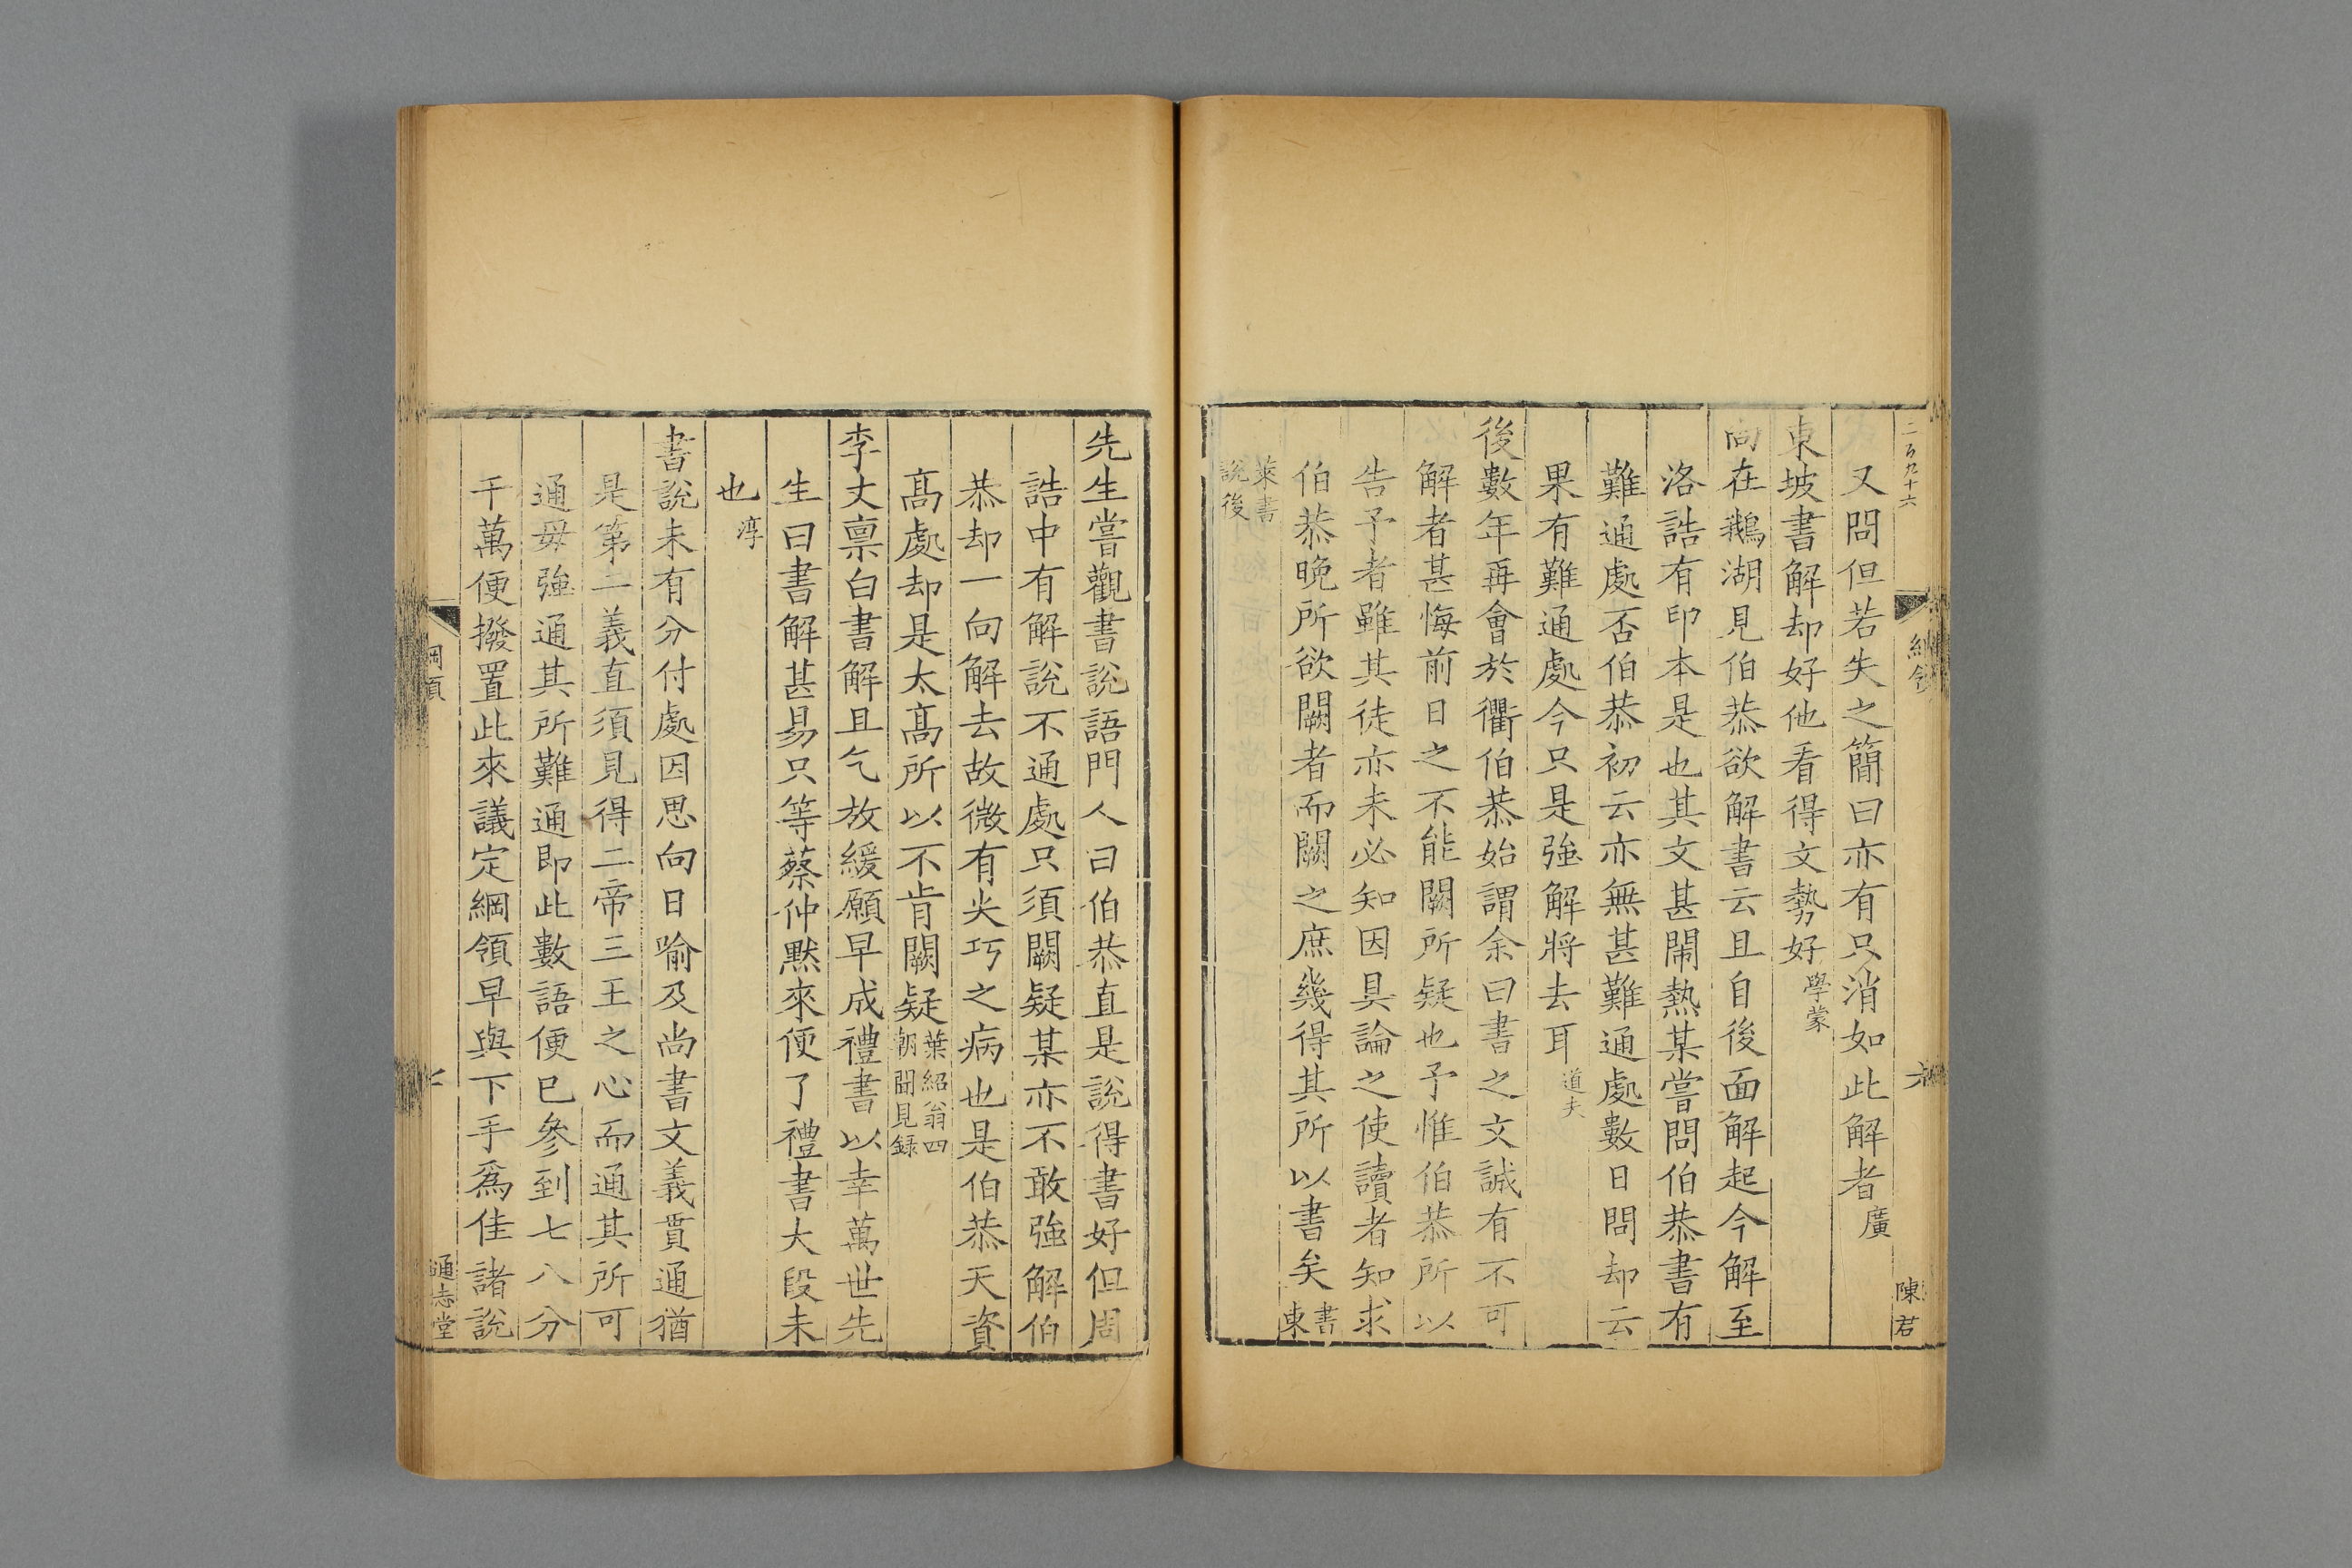 二百九十六
陳君
又問但若失之簡曰亦有只消如此解者廣
東坡書解却好他看得文勢好學蒙
向在鵝湖見伯恭欲解書云且自後面解起今解至
洛誥有印本是也其文甚鬧熱某嘗問伯恭書有
難通處否伯恭初云亦無甚難通處數日問却云
果有難通處今只是強解將去耳道夫
後數年再會於衢伯恭始謂余曰書之文誠有不可
解者甚悔前日之不能闕所疑也予惟伯恭所以
告予者雖其徒亦未必知因具論之使讀者知求
伯恭晚所欲闕者而闕之庶幾得其所以書矣書東
萊書說後
先生嘗觀書說語門人曰伯恭直是說得書好但周
誥中有解說不通處只須闕疑某亦不敢強解伯
恭却一向解去故微有尖巧之病也是伯恭天資
髙處却是太髙所以不肯闕疑葉紹翁四朝聞見録
李丈禀白書解且乞放緩願早成禮書以幸萬世先
生曰書解甚易只等蔡仲默來便了禮書大段未
也淳
書說未有分付處因思向日喻及尚書文義貫通猶
是第二義直須見得二帝三王之心而通其所可
通毋強通其所難通即此數語便已參到七八分
千萬便撥置此來議定綱領早與下手爲佳諸說
通志堂